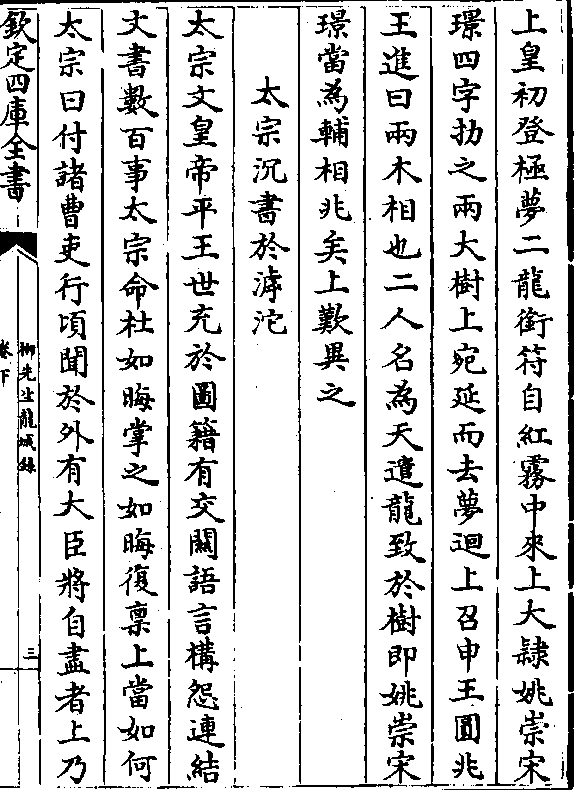 上皇初登極夢二龍銜符自紅霧中來上大隸姚崇宋
璟四字掛之兩大樹上宛延而去夢迴上召申王圓兆
王進曰兩木相也二人名為天遣龍致於樹即姚崇宋
璟當為輔相兆矣上歎異之
太宗沉書於滹沱
太宗文皇帝平王世充於圖籍有交關語言構怨連結
文書數百事太宗命杜如晦掌之如晦復稟上當如何
太宗曰付諸曹吏行頃聞於外有大臣將自盡者上乃
欽定四庫全書
柳先生龍城錄
卷下
三